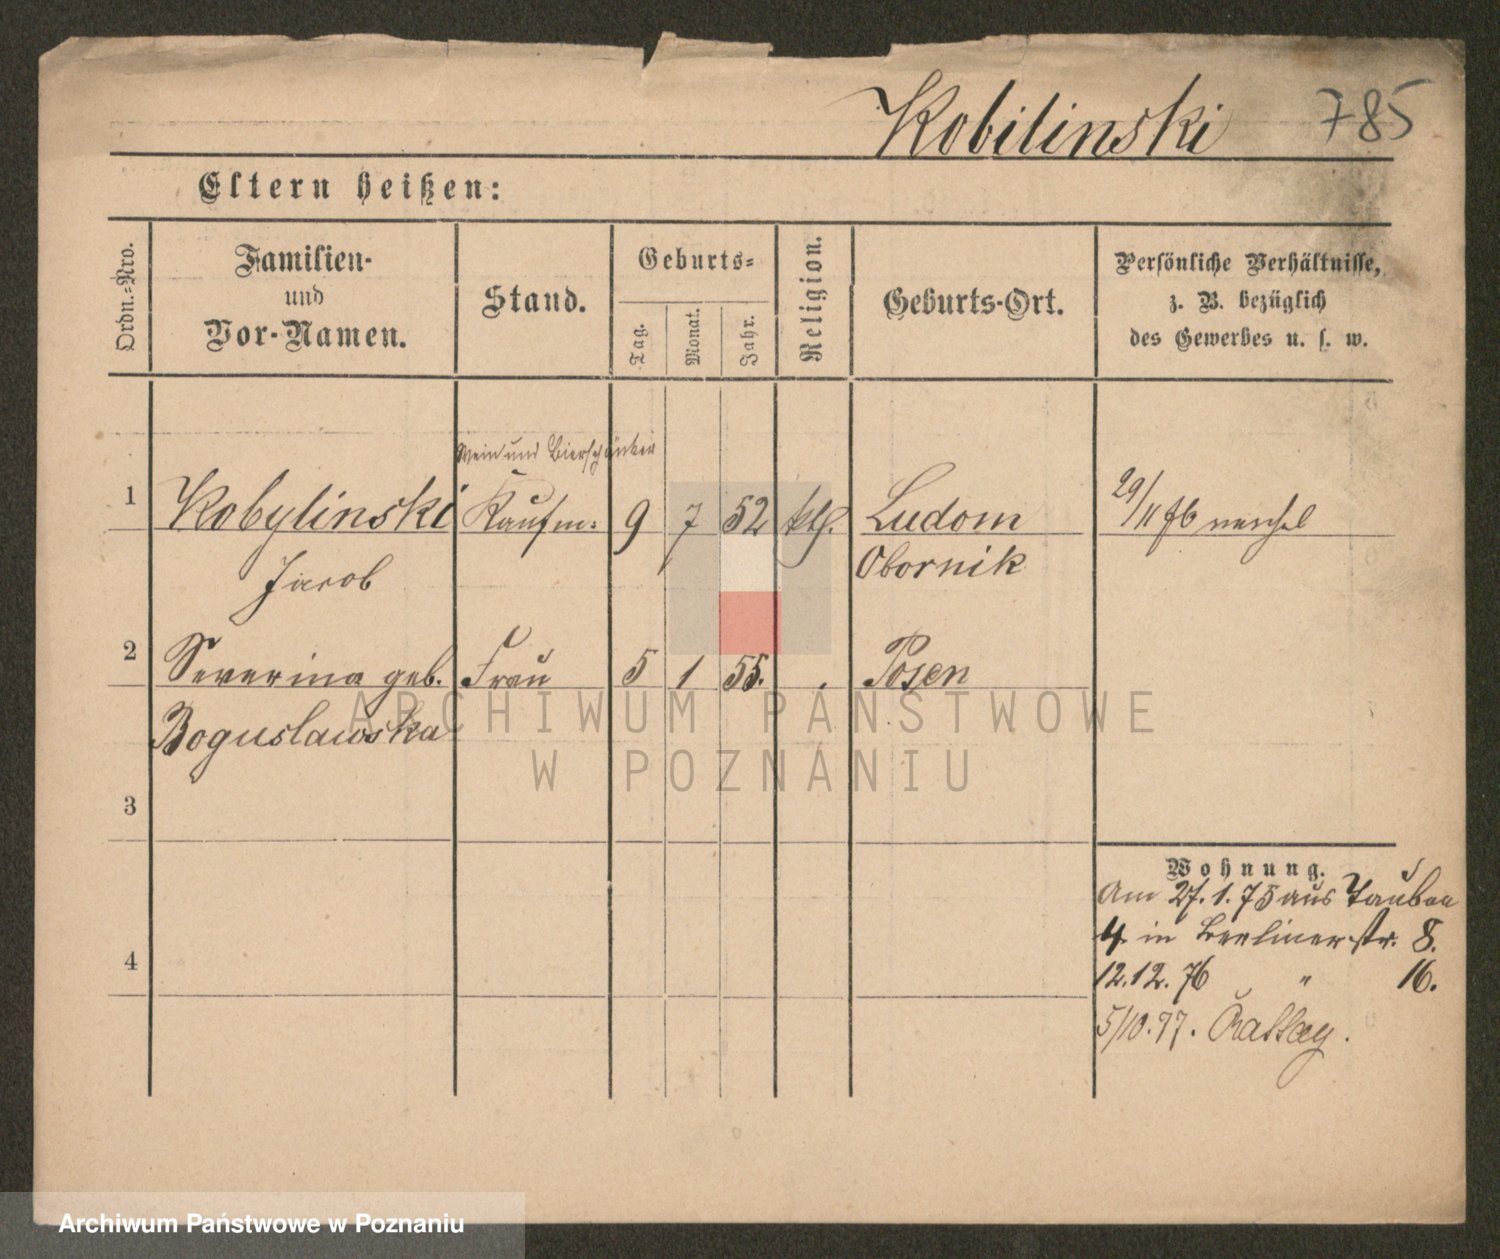 Kobilinski 785
Eltern heißen:
Ordn.-Nro.
Familien-
und
Vor-Namen.
Stand.
Geburts-
Tag.
Monat.
Jahr.
Religion.
Geburts-Ort.
Persönliche Verhältnisse,
z. B. bezüglich
des Gewerbes u. s. w.
Wein und Bierschänker
1 Kobylinski Kaufm: 9 7 52 kth. Ludom 29/11 76
Jacob Obornik
2 Severina geb. Frau 5 1 55. Posen
Boguslawska
3
4
Wohnung.
Am 27.1.75 aus Tauben
4 in Berlinerstr. 8.
12.12.76 " 16.
5/10.77.
ARCHIWUM PAŃSTWOWE
W POZNANIU
Archiwum Państwowe w Poznaniu